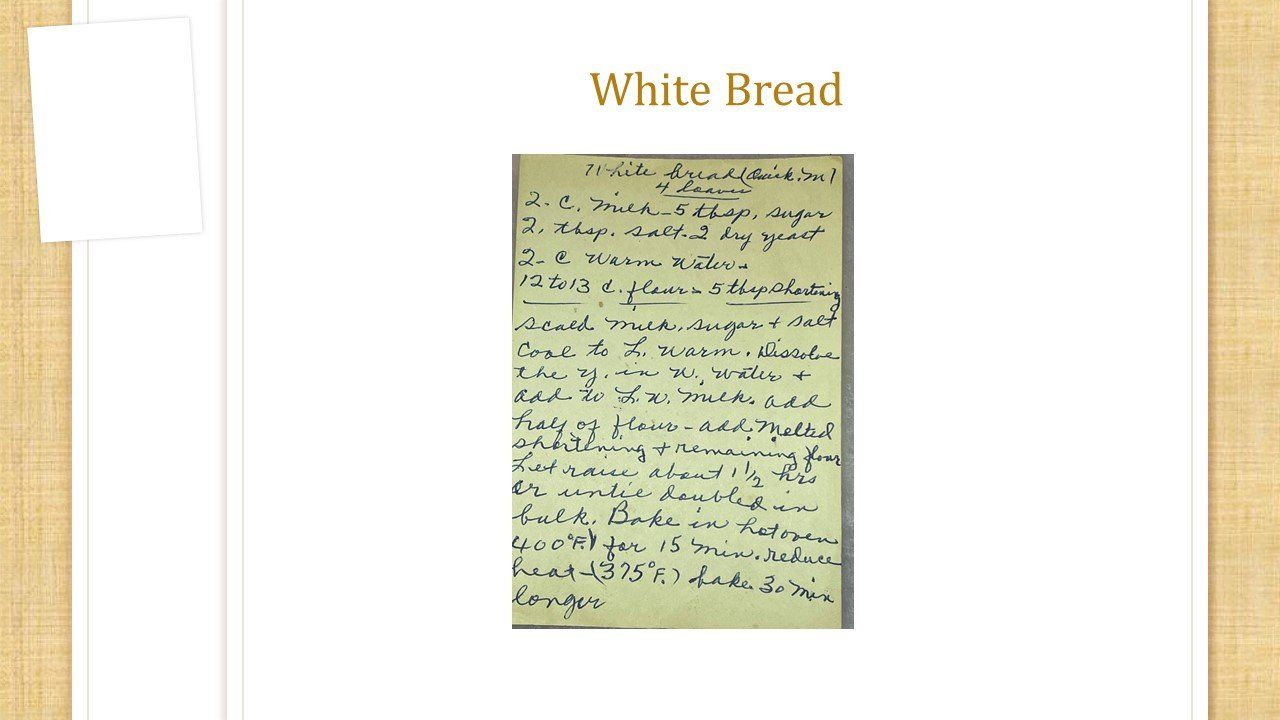 White Bread
White bread (Quick. M)
4 loaves
2- C. Milk - 5 tbsp. sugar
2. tbsp. salt - 2 dry yeast
2- C Warm Water -
12 to 13 C. flour - 5 tbsp shortening
scald milk, sugar + salt
Cool to L. Warm. Dissolve
the y. in W. Water +
add to L. W. Milk. add
half of flour - add Melted
shortening + remaining flour
Let raise about 1 1/2 hrs
or until doubled in
bulk. Bake in hot oven
400°F.) for 15 min. reduce
heat - (375°F.) bake 30 min
longer